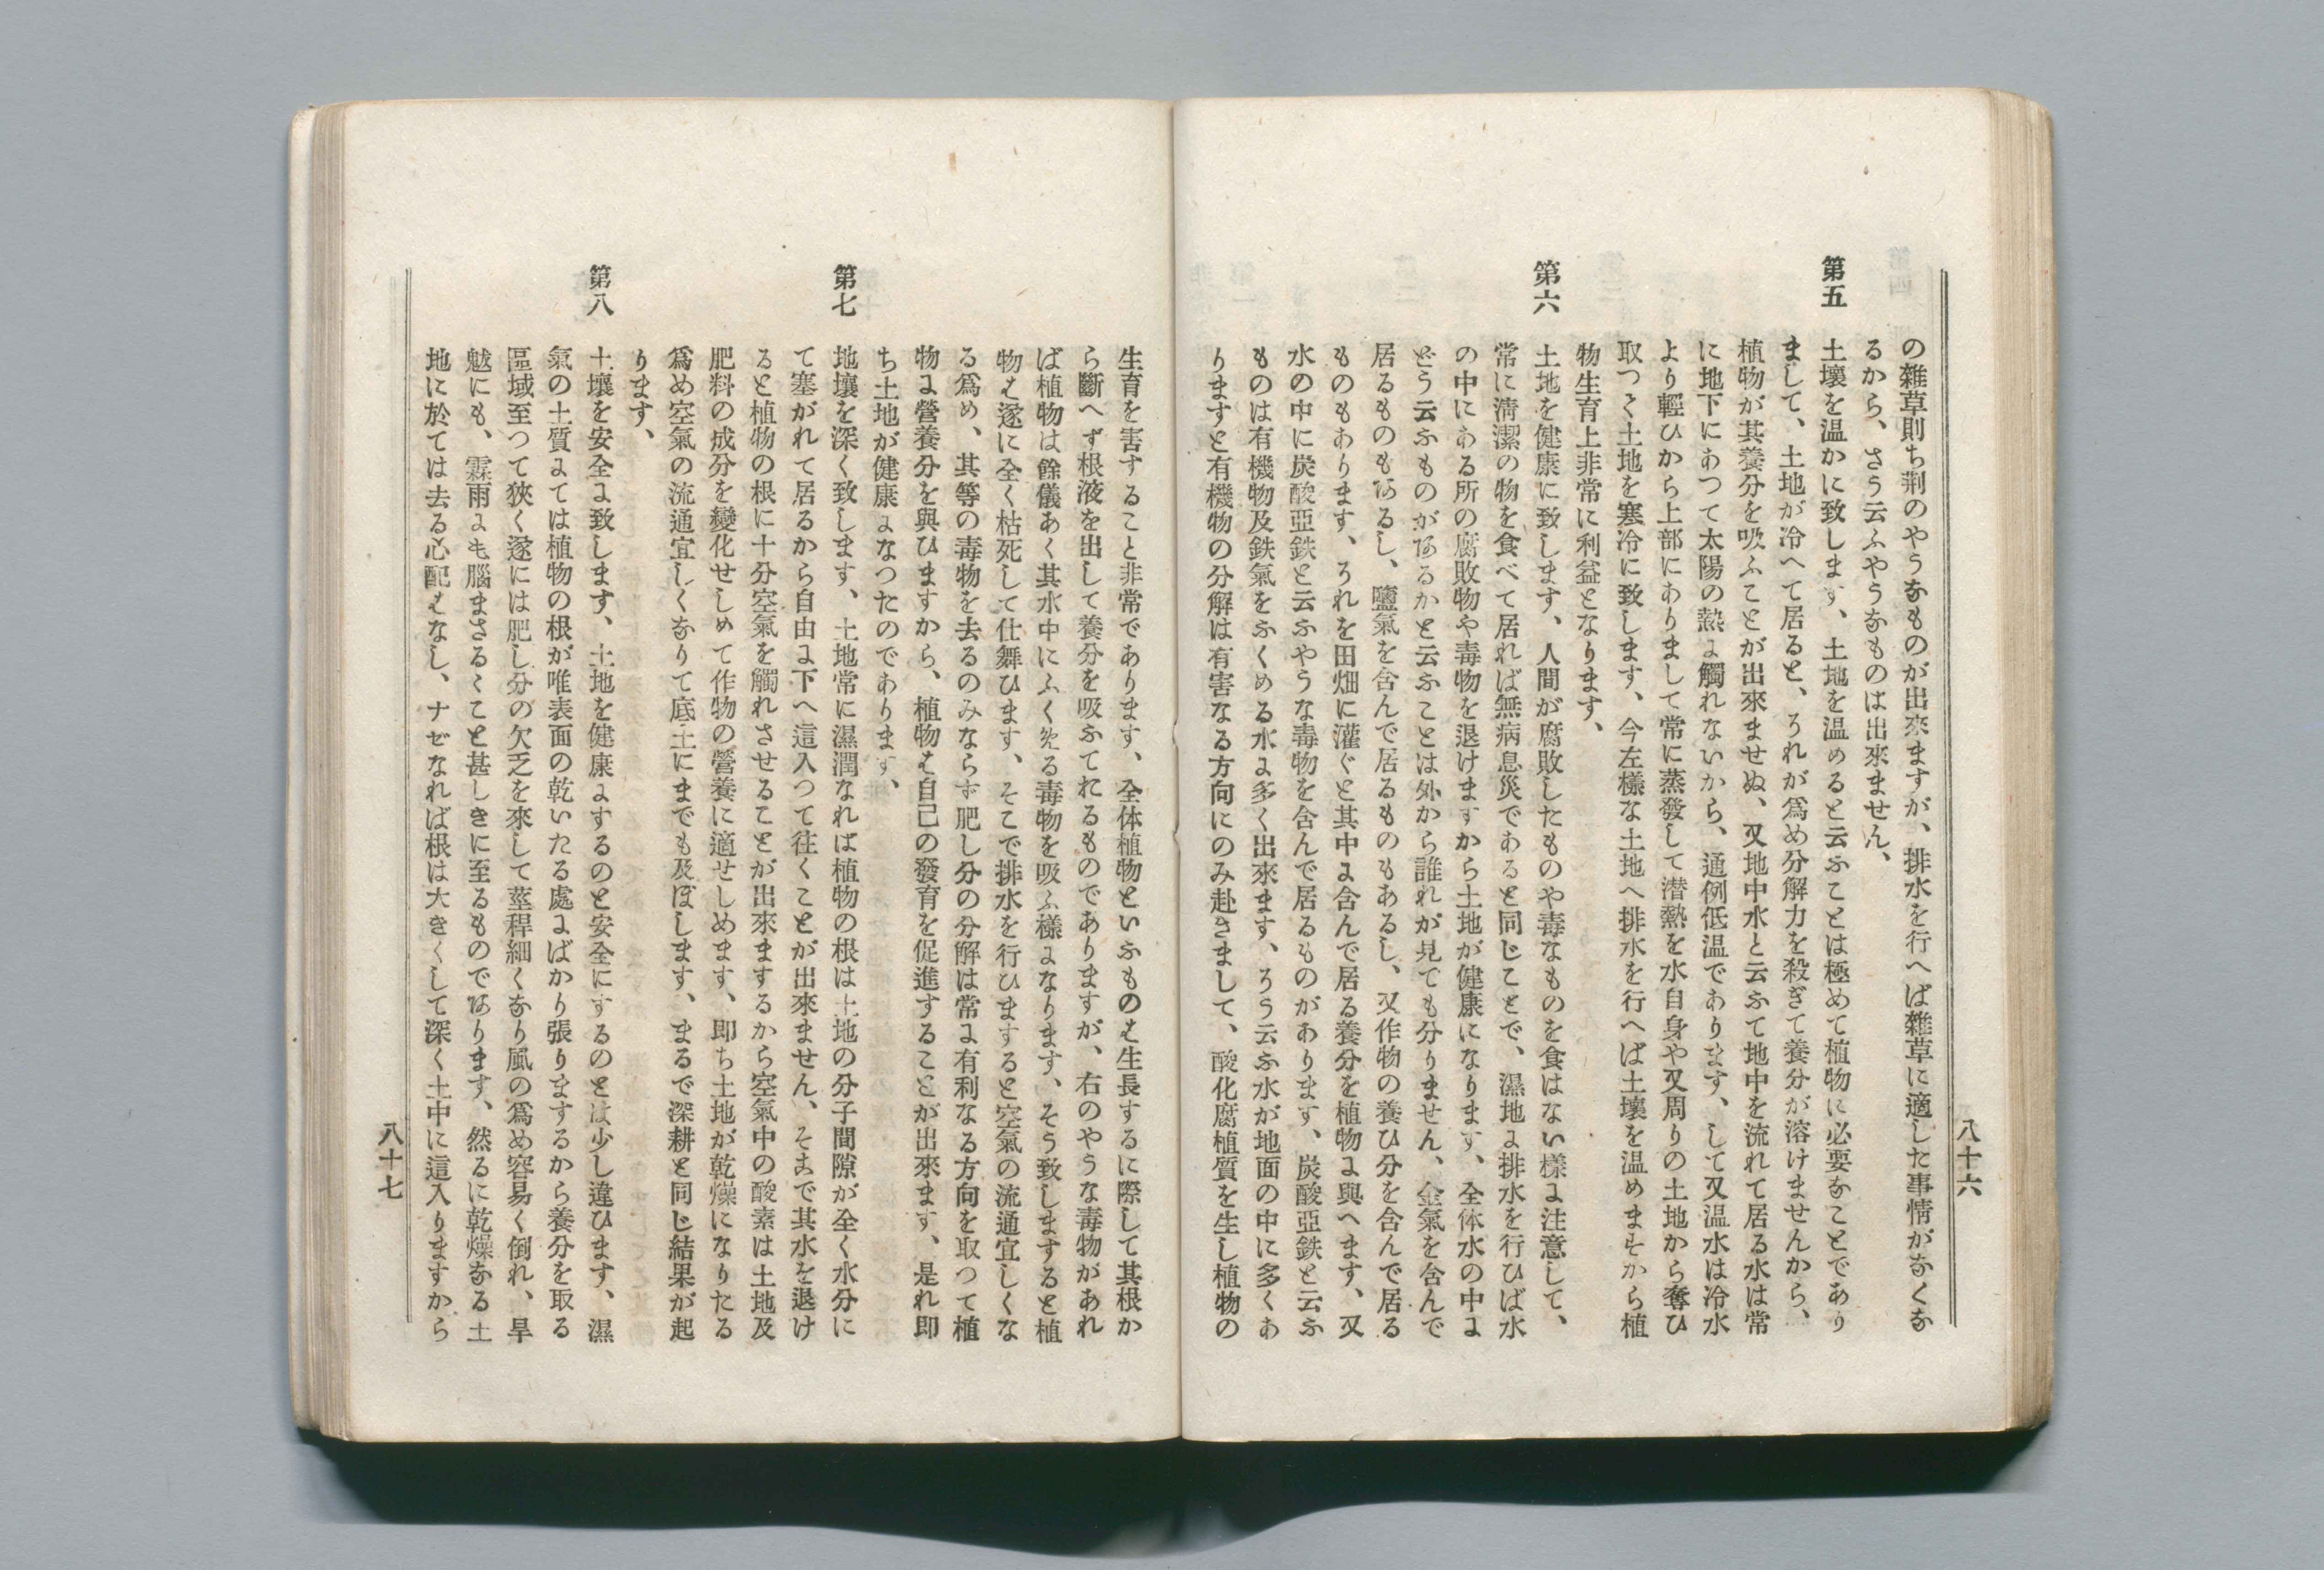 の雜草則ち荆のやうなものが出來ますが、排水を行へば雜草に適した事情がなくな
るから、さう云ふやうなものは出來ません、
第五
土壤を温かに致します、土地を温めると云ふことは極めて植物に必要なことであり
まして、土地が冷へて居ると、それが爲め分解力を殺ぎて養分が溶けませんから、
植物が其養分を吸ふことが出來ませぬ、又地中水と云ふて地中を流れて居る水は常
に地下にあつて太陽の熱に觸れないから、通例低温であります、して又温水は冷水
より輕ひから上部にありまして常に蒸發して潜熱を水自身や又周りの土地から奪ひ
取つて土地を寒冷に致します、今左樣な土地へ排水を行へば土壤を温めますから植
物生育上非常に利益となります、
第六
土地を健康に致します、人間が腐敗したものや毒なものを食はない樣に注意して、
常に淸潔の物を食べて居れば無病息災であると同じことで、濕地に排水を行ひば水
の中にある所の腐敗物や毒物を退けますから土地が健康になります、全体水の中に
どう云ふものがあるかと云ふことは外から誰れが見ても分りません、金氣を含んで
居るものもあるし、鹽氣を含んで居るものもあるし、又作物の養ひ分を含んで居る
ものもあります、それを田畑に灌ぐと其中に含んで居る養分を植物に與へます、又
水の中に炭酸亞鉄と云ふやうな毒物を含んで居るものがあります、炭酸亞鉄と云ふ
ものは有機物及鉄氣をふくめる水に多く出來ます、そう云ふ水が地面の中に多くあ
りますと有機物の分解は有害なる方向にのみ赴きまして、酸化腐植質を生し植物の
八十六
生育を害すること非常であります、全体植物といふものは生長するに際して其根か
ら斷へず根液を出して養分を吸ふてれるものでありますが、右のやうな毒物があれ
ば植物は餘儀あく其水中にふくれる毒物を吸ふ樣になります、そう致しますると植
物は遂に全く枯死して仕舞ひます、そこで排水を行ひますると空氣の流通宜しくな
る爲め、其等の毒物を去るのみならず肥し分の分解は常に有利なる方向を取つて植
物に營養分を與ひますから、植物は自己の發育を促進することが出來ます、是れ即
ち土地が健康になつたのであります、
第七
地壤を深く致します、土地常に濕潤なれば植物の根は土地の分子間隙が全く水分に
て塞がれて居るから自由に下へ這入つて往くことが出來ません、そこで其水を退け
ると植物の根に十分空氣を觸れさせることが出來ますするから空氣中の酸素は土地及
肥料の成分を變化せしめて作物の營養に適せしめます、即ち土地が乾燥になりたる
爲め空氣の流通宜しくなりて底土にまでも及ぼします、まるで深耕と同じ結果が起
ります、
第八
土壤を安全に致します、土地を健康にするのと安全にするのとは少し違ひます、濕
氣の土質にては植物の根が唯表面の乾いたる處にばかり張りまするから養分を取る
區域至つて狹く遂には肥し分の欠乏を來して莖稈細くなり風の爲め容易く倒れ、旱
魃にも、霖雨にも腦まさるゝこと甚しきに至るものであります、然るに乾燥なる土
地に於ては去る心配はなし、ナゼなれば根は大きくして深く土中に這入りますから
八十七